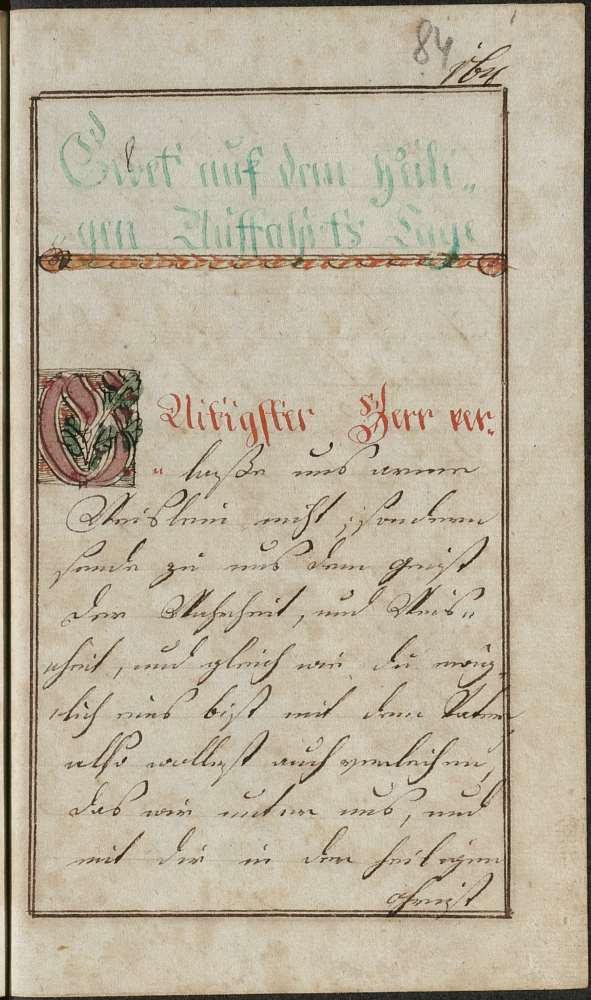 84
Gebet auf dem Heili„
„gen Auffahrts Tage
Gütigster Herr ver„
„laße uns arme
Waislein nicht, sondern
sende zu uns den geist
der Wahrheit, und Weis„
„heit, und gleich wie du ewig„
„lich eins bist mit dem Vater,
also wollest auch verleihen,
das wir unter uns, und
mit dir in den heiligen
geist